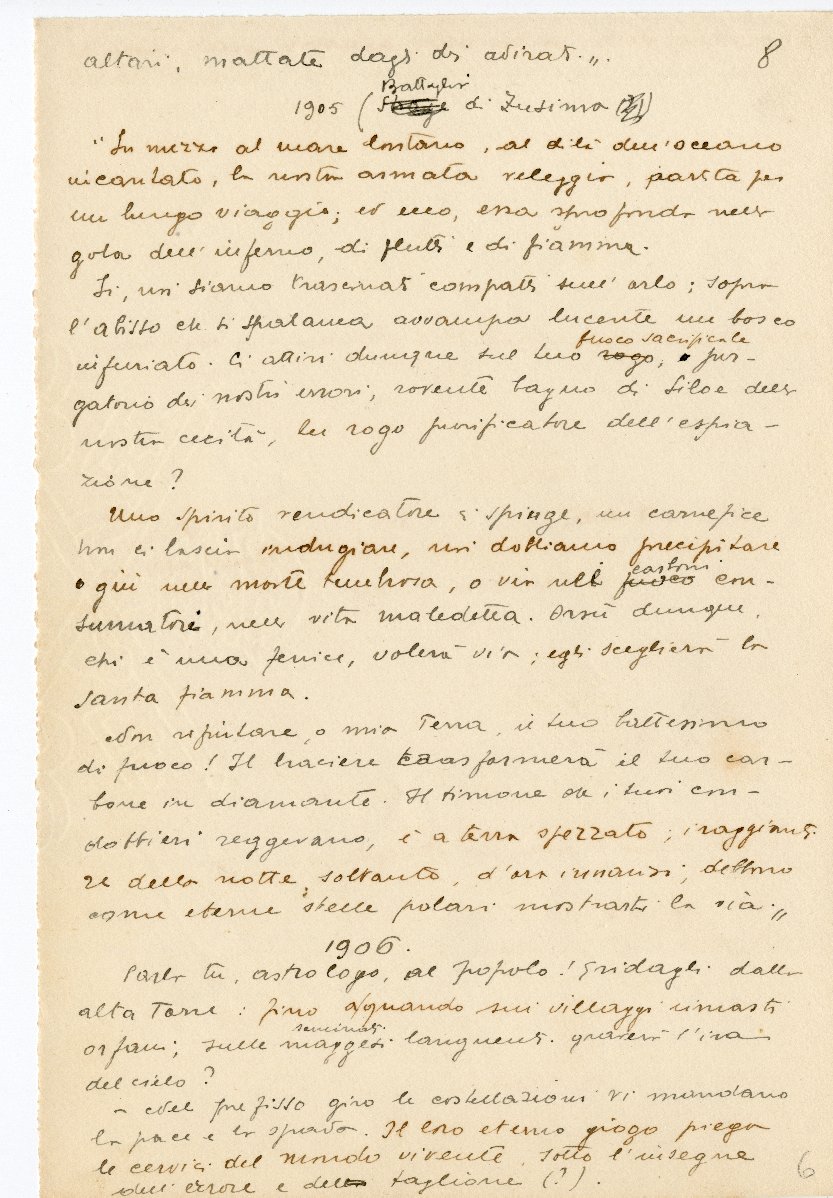 altari, mattate dagli dei adirati.„
8
Battaglia
1905 (Strage di Zusima
"In mezzo al mare lontano, al di là dell'oceano
incantato, la nostra armata veleggia, partita per
un lungo viaggio; ed ecco, essa sprofonda nella
gola dell'inferno, di flutti e di fiamma.
Si, noi siamo trascinati compatti sull'orlo; sopra
l'abisso che si spalanca avvampa lucente un bosco
fuoco sacrificale
infuriato. Ci attiri dunque sul tuo rogo, pur-
gatorio dei nostri errori, rovente bagno di Siloe della
nostra cecità, tu rogo purificatore dell'espia-
zione?
Uno spirito vendicatore ci spinge, un carnefice
non ci lascia indugiare, noi dobbiamo precipitare
carboni
o giù nella morte tenebrosa, o via nel fuoco con-
sumatori, nella vita maledetta. Orsù dunque,
chi è una fenice, volerà via; egli sceglierà la
santa fiamma.
Non rifiutare, o mia Terra, il tuo battesimo
di fuoco! Il braciere trasformerà il tuo car-
bone in diamante. Il timone che i tuoi con-
dottieri reggevano, è a terra spezzato; i raggianti
re della notte soltanto, d'ora innanzi, debbono
come eterne stelle polari mostrarti la via.„
1906.
Parla tu, astrologo, al popolo! Gridagli dalla
alta Torre: fino a quando sui villaggi rimasti
seminati
orfani, sulle maggesi languenti graverà l'ira
del cielo?
– Nel prefisso giro le costellazioni vi mandano
la pace e la spada. Il loro eterno giogo piega
le cervici del mondo vivente sotto l'insegne
dell'errore e del taglione (?).
6